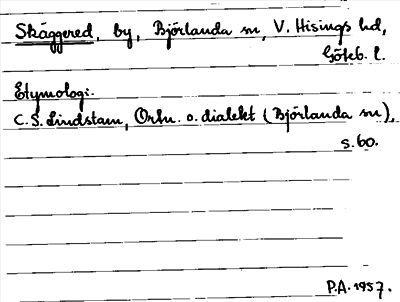 Skäggered, by, Björlanda sn, V. Hisings hd,
Göteb. l.
Etymologi.
C. S. Lindstam, Ortn. o. dialekt (Björlanda sn),
s. 60.
P.A. 1957.